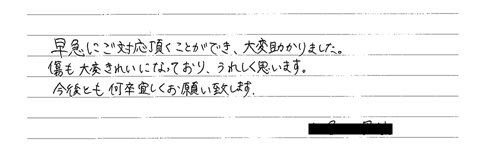 早急にご対応頂くことができ、大変助かりました。
傷も大変きれいになっており、うれしく思います。
今後とも何卒宜しくお願い致します.